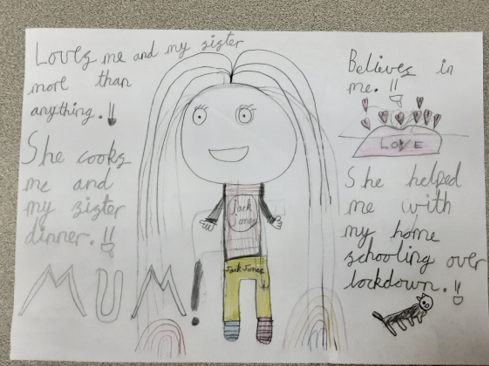 Loves me and my sister
more than
anything.!!
She cooks
me and
my sister
dinner.!!
MUM
Jack
Jones
Jack Jones
Believes in
me.!!
LOVE
She helped
me with
my home
schooling over
lockdown.!!